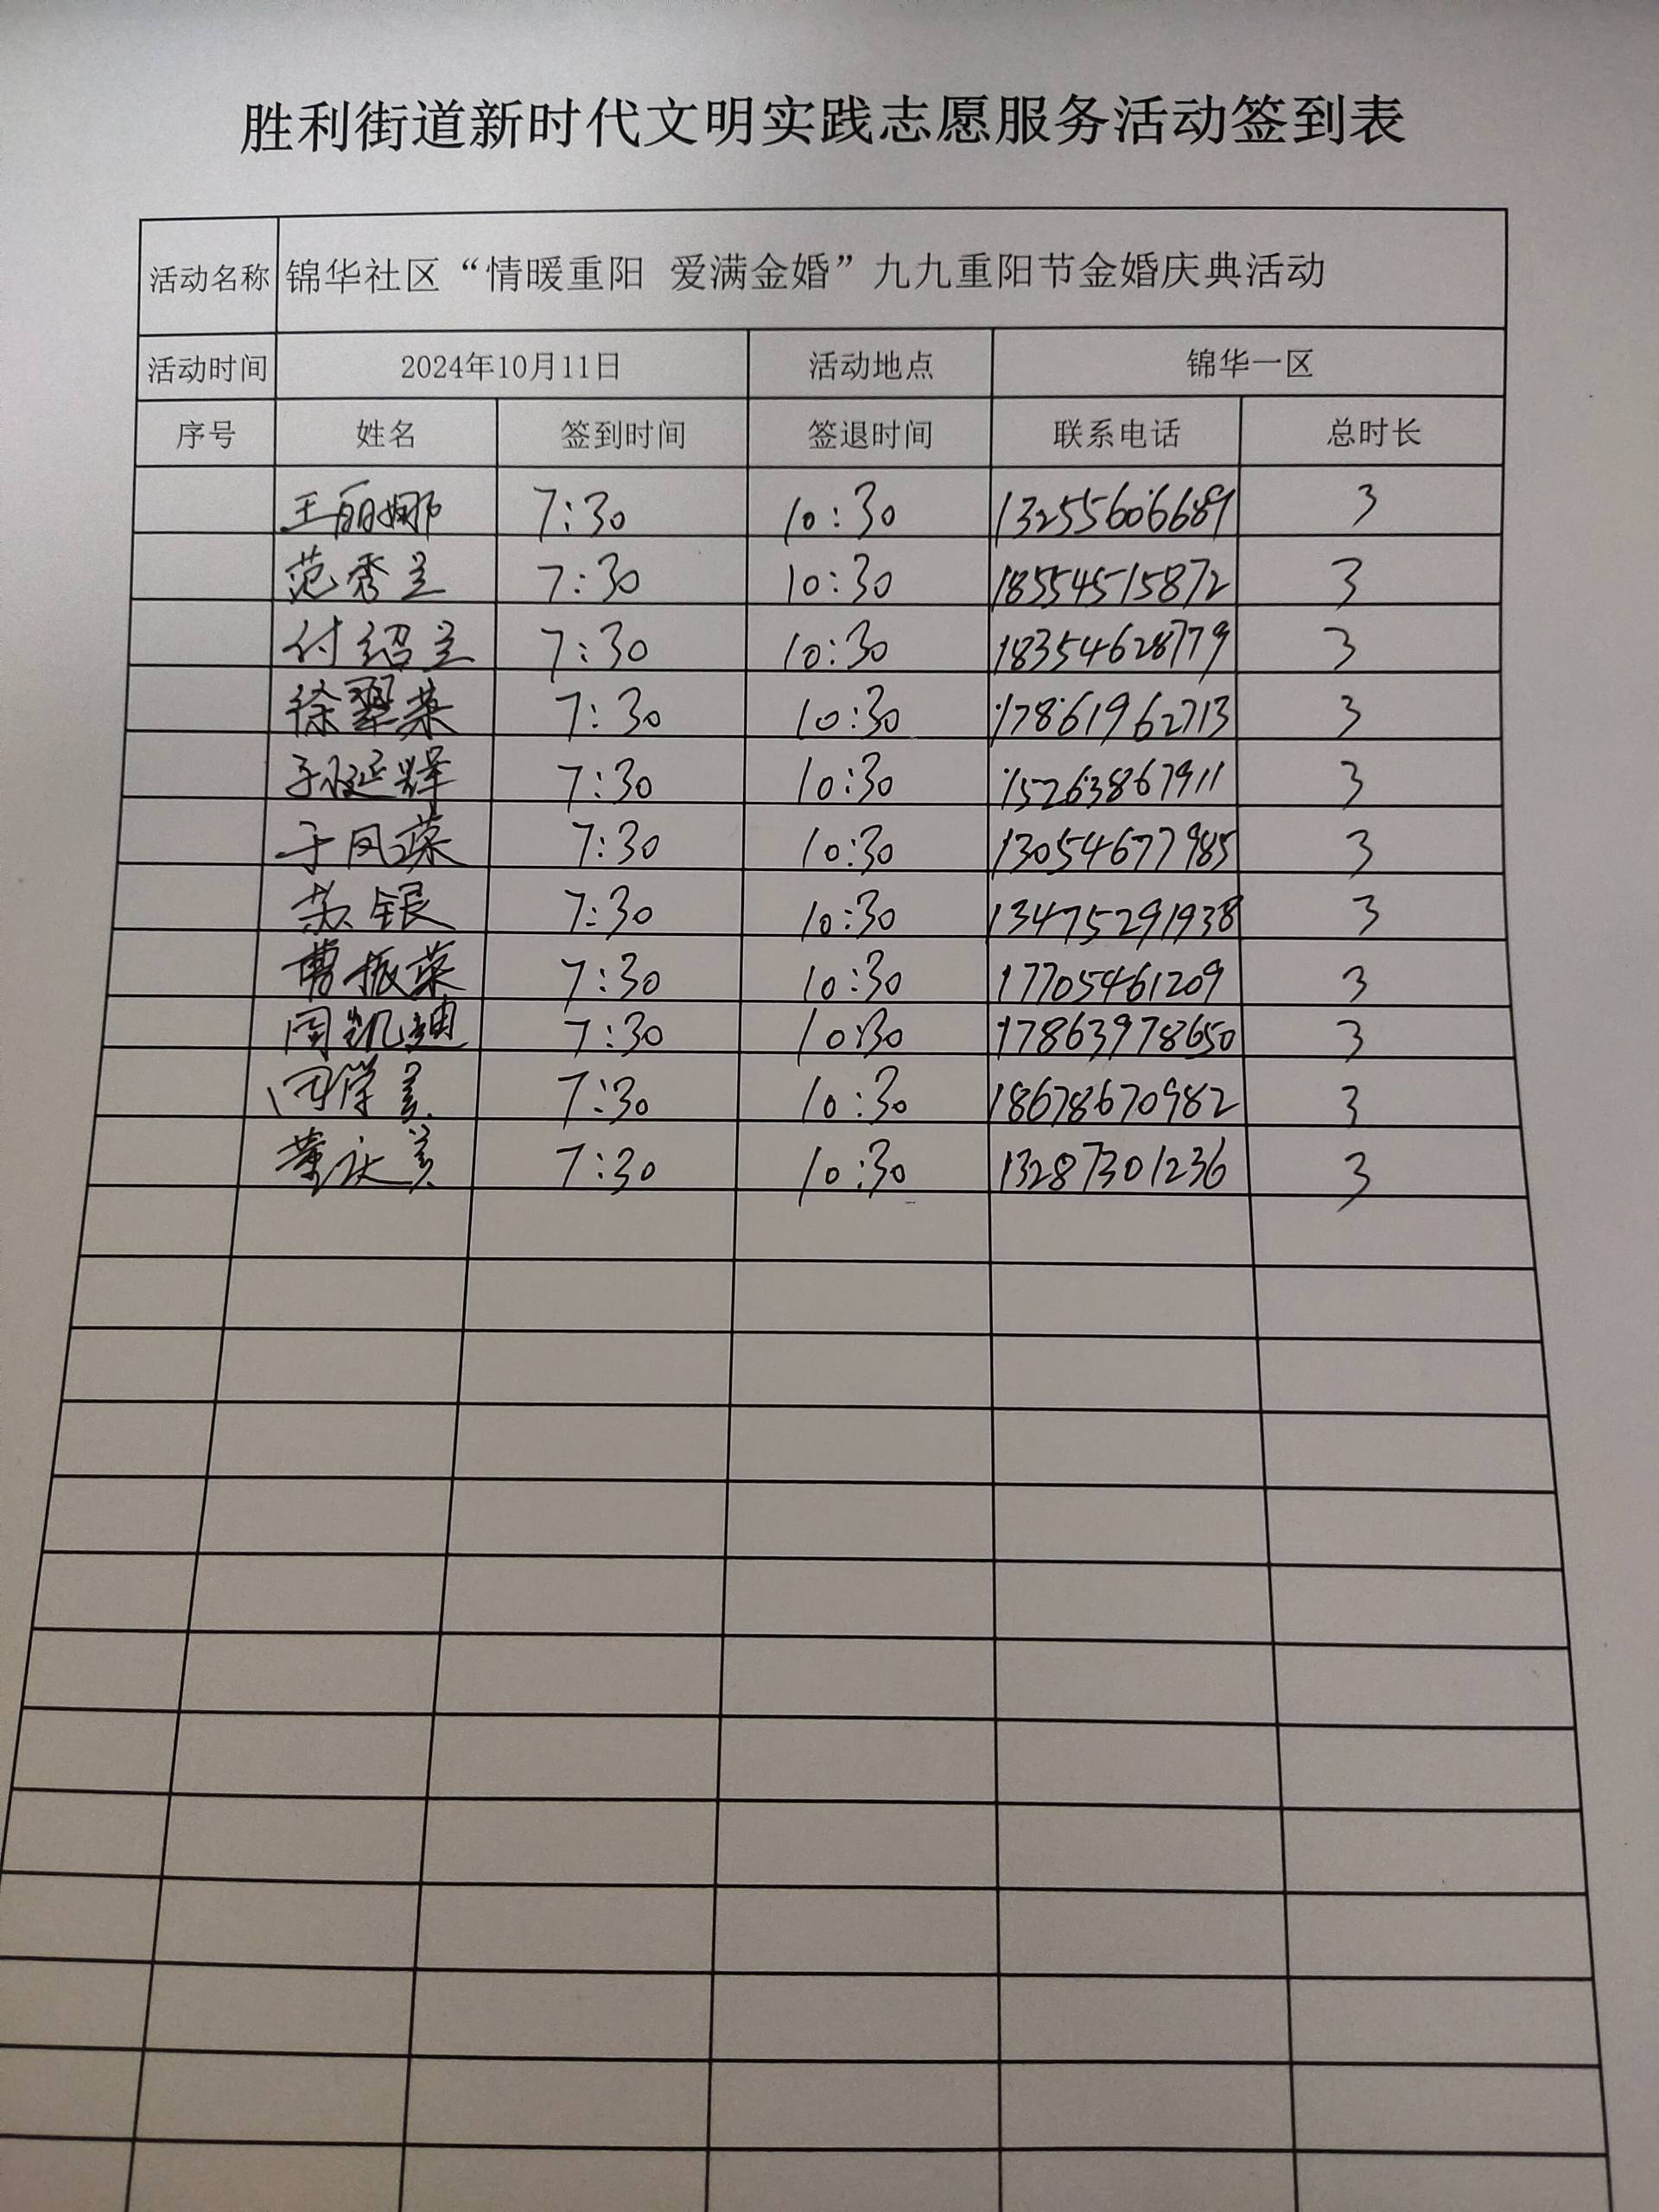 胜利街道新时代文明实践志愿服务活动签到表
活动名称 锦华社区“情暖重阳 爱满金婚”九九重阳节金婚庆典活动
活动时间 2024年10月11日 活动地点 锦华一区
序号 姓名 签到时间 签退时间 联系电话 总时长
王丽娜 7:30 10:30 13255606689 3
范秀兰 7:30 10:30 18554515872 3
付绍兰 7:30 10:30 18354628779 3
徐翠荣 7:30 10:30 17861962713 3
7:30 10:30 15263867911 3
于凤荣 7:30 10:30 13054677985 3
苏银 7:30 10:30 13475291938 3
曹振荣 7:30 10:30 17705461209 3
周凯迪 7:30 10:30 17863978650 3
7:30 10:30 18678670982 3
董庆美 7:30 10:30 13287301236 3